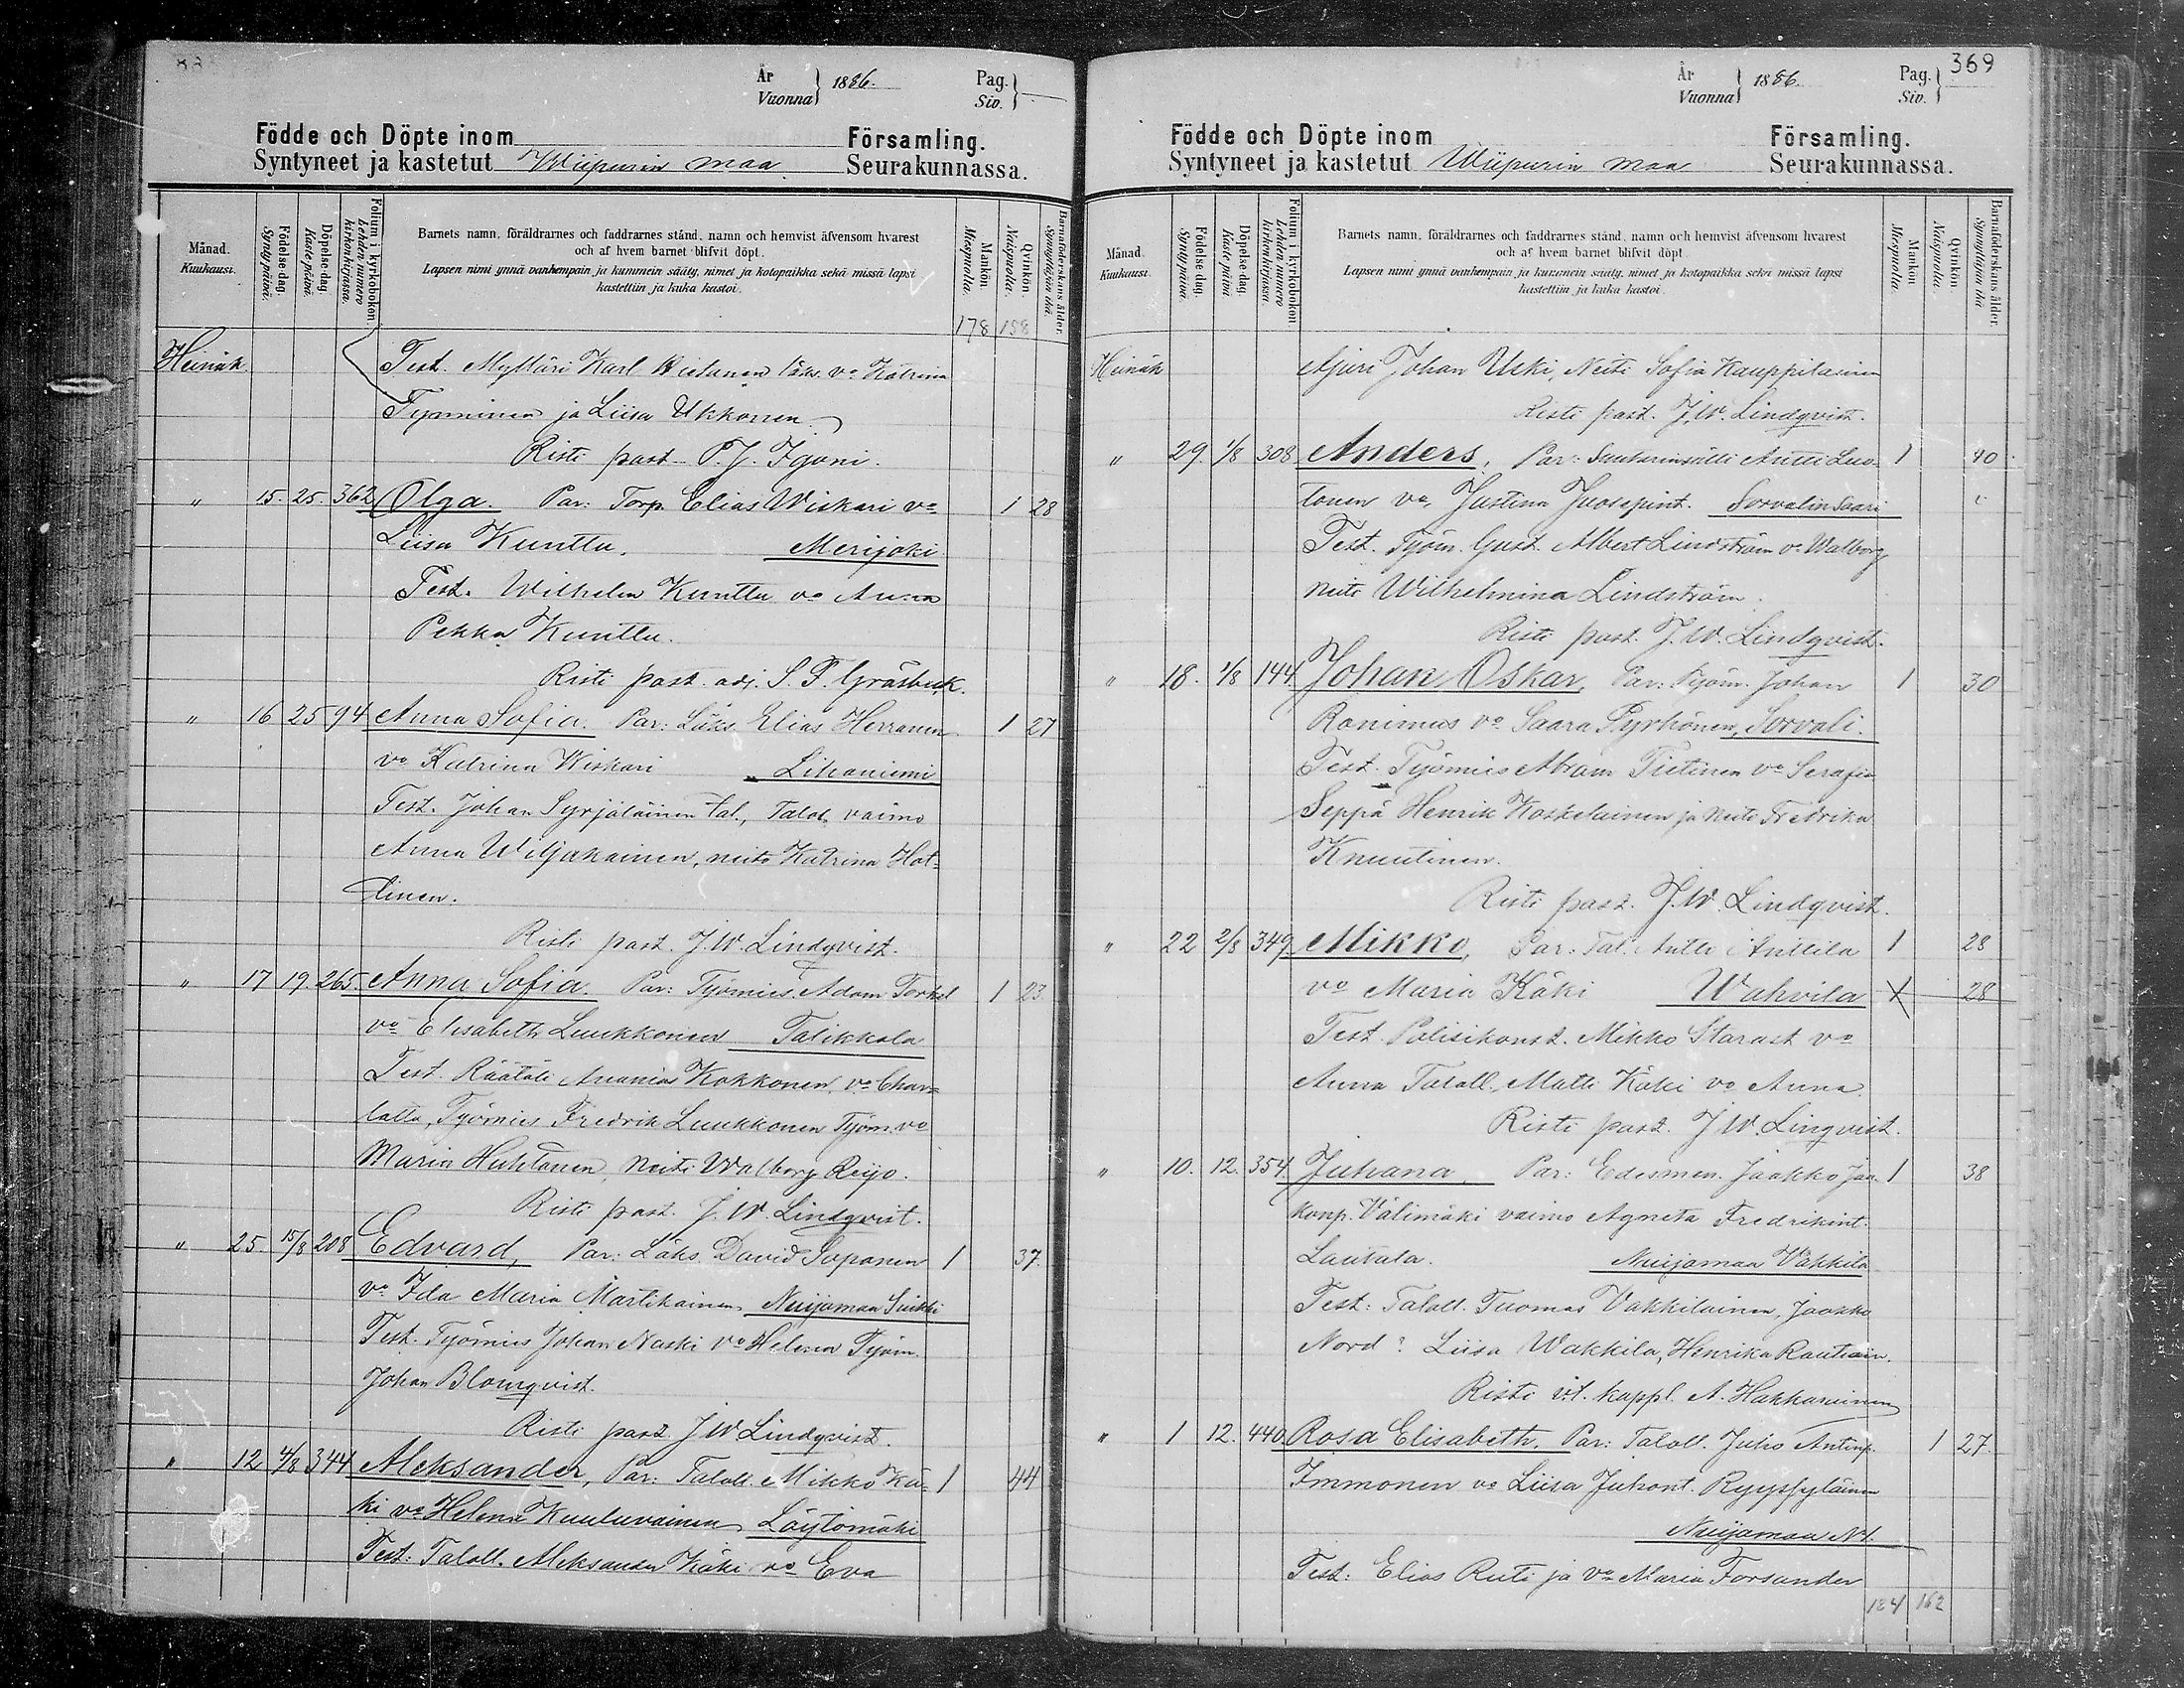 År
Vuonna } 1886.
Pag.
Siv. }
Födde och Döpte inom Församling.
Syntyneet ja kastetut Wiipurin maa Seurakunnassa.
Månad.
Kuukausi.
Födelse dag.
Synty päivä.
Döpelse dag.
Kaste päivä.
Folium i kyrkoboken
Lehden numero kirkonkirjassa.
Barnets namn, föräldrarnes och faddrarnes stånd, namn och hemvist äfvensom hvarest
och af hvem barnet blifvit döpt.
Lapsen nimi ynnä vanhempain ja kummein sääty, nimet ja kotopaikka sekä missä lapsi
kastettiin ja kuka kastoi.
Mankön.
Miespuolia.
Qvinkön.
Naispuolia.
Barnaföderskans ålder.
Synnyttäjän ikä.
178 158
Heinäk. Test. Mylläri Karl Wietanen läks. vo Katrina
Tynninen ja Liisa Ukkonen
Risti past. P. J. Igoni.
" 15. 25. 362 Olga. Par: Torp. Elias Wiskari vo 1 28
Liisa Kunttu. Merijoki
Test. Wilhelm Kunttu vo Anna
Pekka Kunttu.
Risti past. adj. S. F. Gräsbeck.
" 16 25 94 Anna Sofia. Par: Läks. Elias Herranen 1 27
vo Katrina Wiskari Lihaniemi
Test. Johan Syrjäläinen tal., Talol. vaimo
Anna Wiljakainen, neito Katrina Hot-
tinen.
Risti past. J. W. Lindqvist.
" 17 19 265. Anna Sofia. Par: Työmies. Adam Torkel 1 23
vo Elisabeth Luukkonen Talikkala
Test. Räätäli Ananias Kokkonen, vo Char-
lotta, Työmies Fredrik Luukkonen Työm. vo
Maria Huhtanen, Neiti Walborg Reijo.
Risti past. J. W. Lindqvist.
" 25. 15/8 208 Edvard, Par: Läks. David Soponen 1 37.
vo Ida Maria Martikainen, Nuijamaa
Test. Työmies Johan Naski vo Helena Työm.
Johan Blomqvist.
Risti past. J W Lindqvist.
" 12 4/8 344 Aleksander, Par: Taloll. Mikko Kä- 1 44
ki vo Helena Kuuluvainen Löytömäki
Test: Taloll. Aleksander Käki vo Eva
369
År
Vuonna } 1886.
Pag.
Siv. }
Födde och Döpte inom Församling.
Syntyneet ja kastetut Wiipurin maa Seurakunnassa.
Månad.
Kuukausi.
Födelse dag.
Synty päivä.
Döpelse dag.
Kaste päivä.
Folium i kyrkoboken
Lehden numero kirkonkirjassa.
Barnets namn, föräldrarnes och faddrarnes stånd, namn och hemvist äfvensom hvarest
och af hvem barnet blifvit döpt.
Lapsen nimi ynnä vanhempain ja kummein sääty, nimet ja kotopaikka sekä missä lapsi
kastettiin ja kuka kastoi.
Mankön
Miespuolia.
Qvinkön.
Naispuolia.
Barnaföderskans ålder.
Synnyttäjän ikä
Heinäk Ajuri Johan Uski, Neiti Sofia Kauppilainen
Risti past. J. W. Lindqvist.
" 29. 1/8 308 Anders, Par: Antti Luo- 1 40
tonen vo, Justina Sorvalinsaari
Test. Työm. Gust. Albert Lindström vo Walborg
neito Wilhelmina Lindström.
Risti past. J. W. Lindqvist.
" 18. 1/8 144. Johan Oskar, Par: Työm. Johan 1 30
Ronimus vo Saara Pyrhönen, Sorvali.
Test. Työmies Abram Tietinen vo Serafia
Seppä Henrik Koskelainen ja neito Fredrika
Knuutinen.
Risti past. J. W. Lindqvist.
" 22 2/8 349. Mikko, Par: Tal. Antti Anttila 1 28
vo Maria Käki Wahvila X 28
Test. Polisikonst. Mikko Starast vo
Anna Taloll. Matti Käki vo Anna.
Risti past. J W. Linqvist.
" 10. 12. 354. Juhana Par: Edesmen. Jaakko Jaa- 1 38
konp. Välimäki vaimo Agneta Fredrikint.
Lautala. Nuijamaa Väkkilä
Test: Taloll. Tuomas Vakkilainen, Jaakko
Nord? Liisa Wakkila, Henrika Rautiain.
Risti v.t. kappl. A. Hakkarainen
" 1 12. 440. Rosa Elisabeth, Par: Taloll. Juho Antinp. 1 27.
Immonen vo Liisa Juhont. Ryypyläinen
Nuijamaa
Test: Elias Ruti ja vo Maria Forsander
184 162